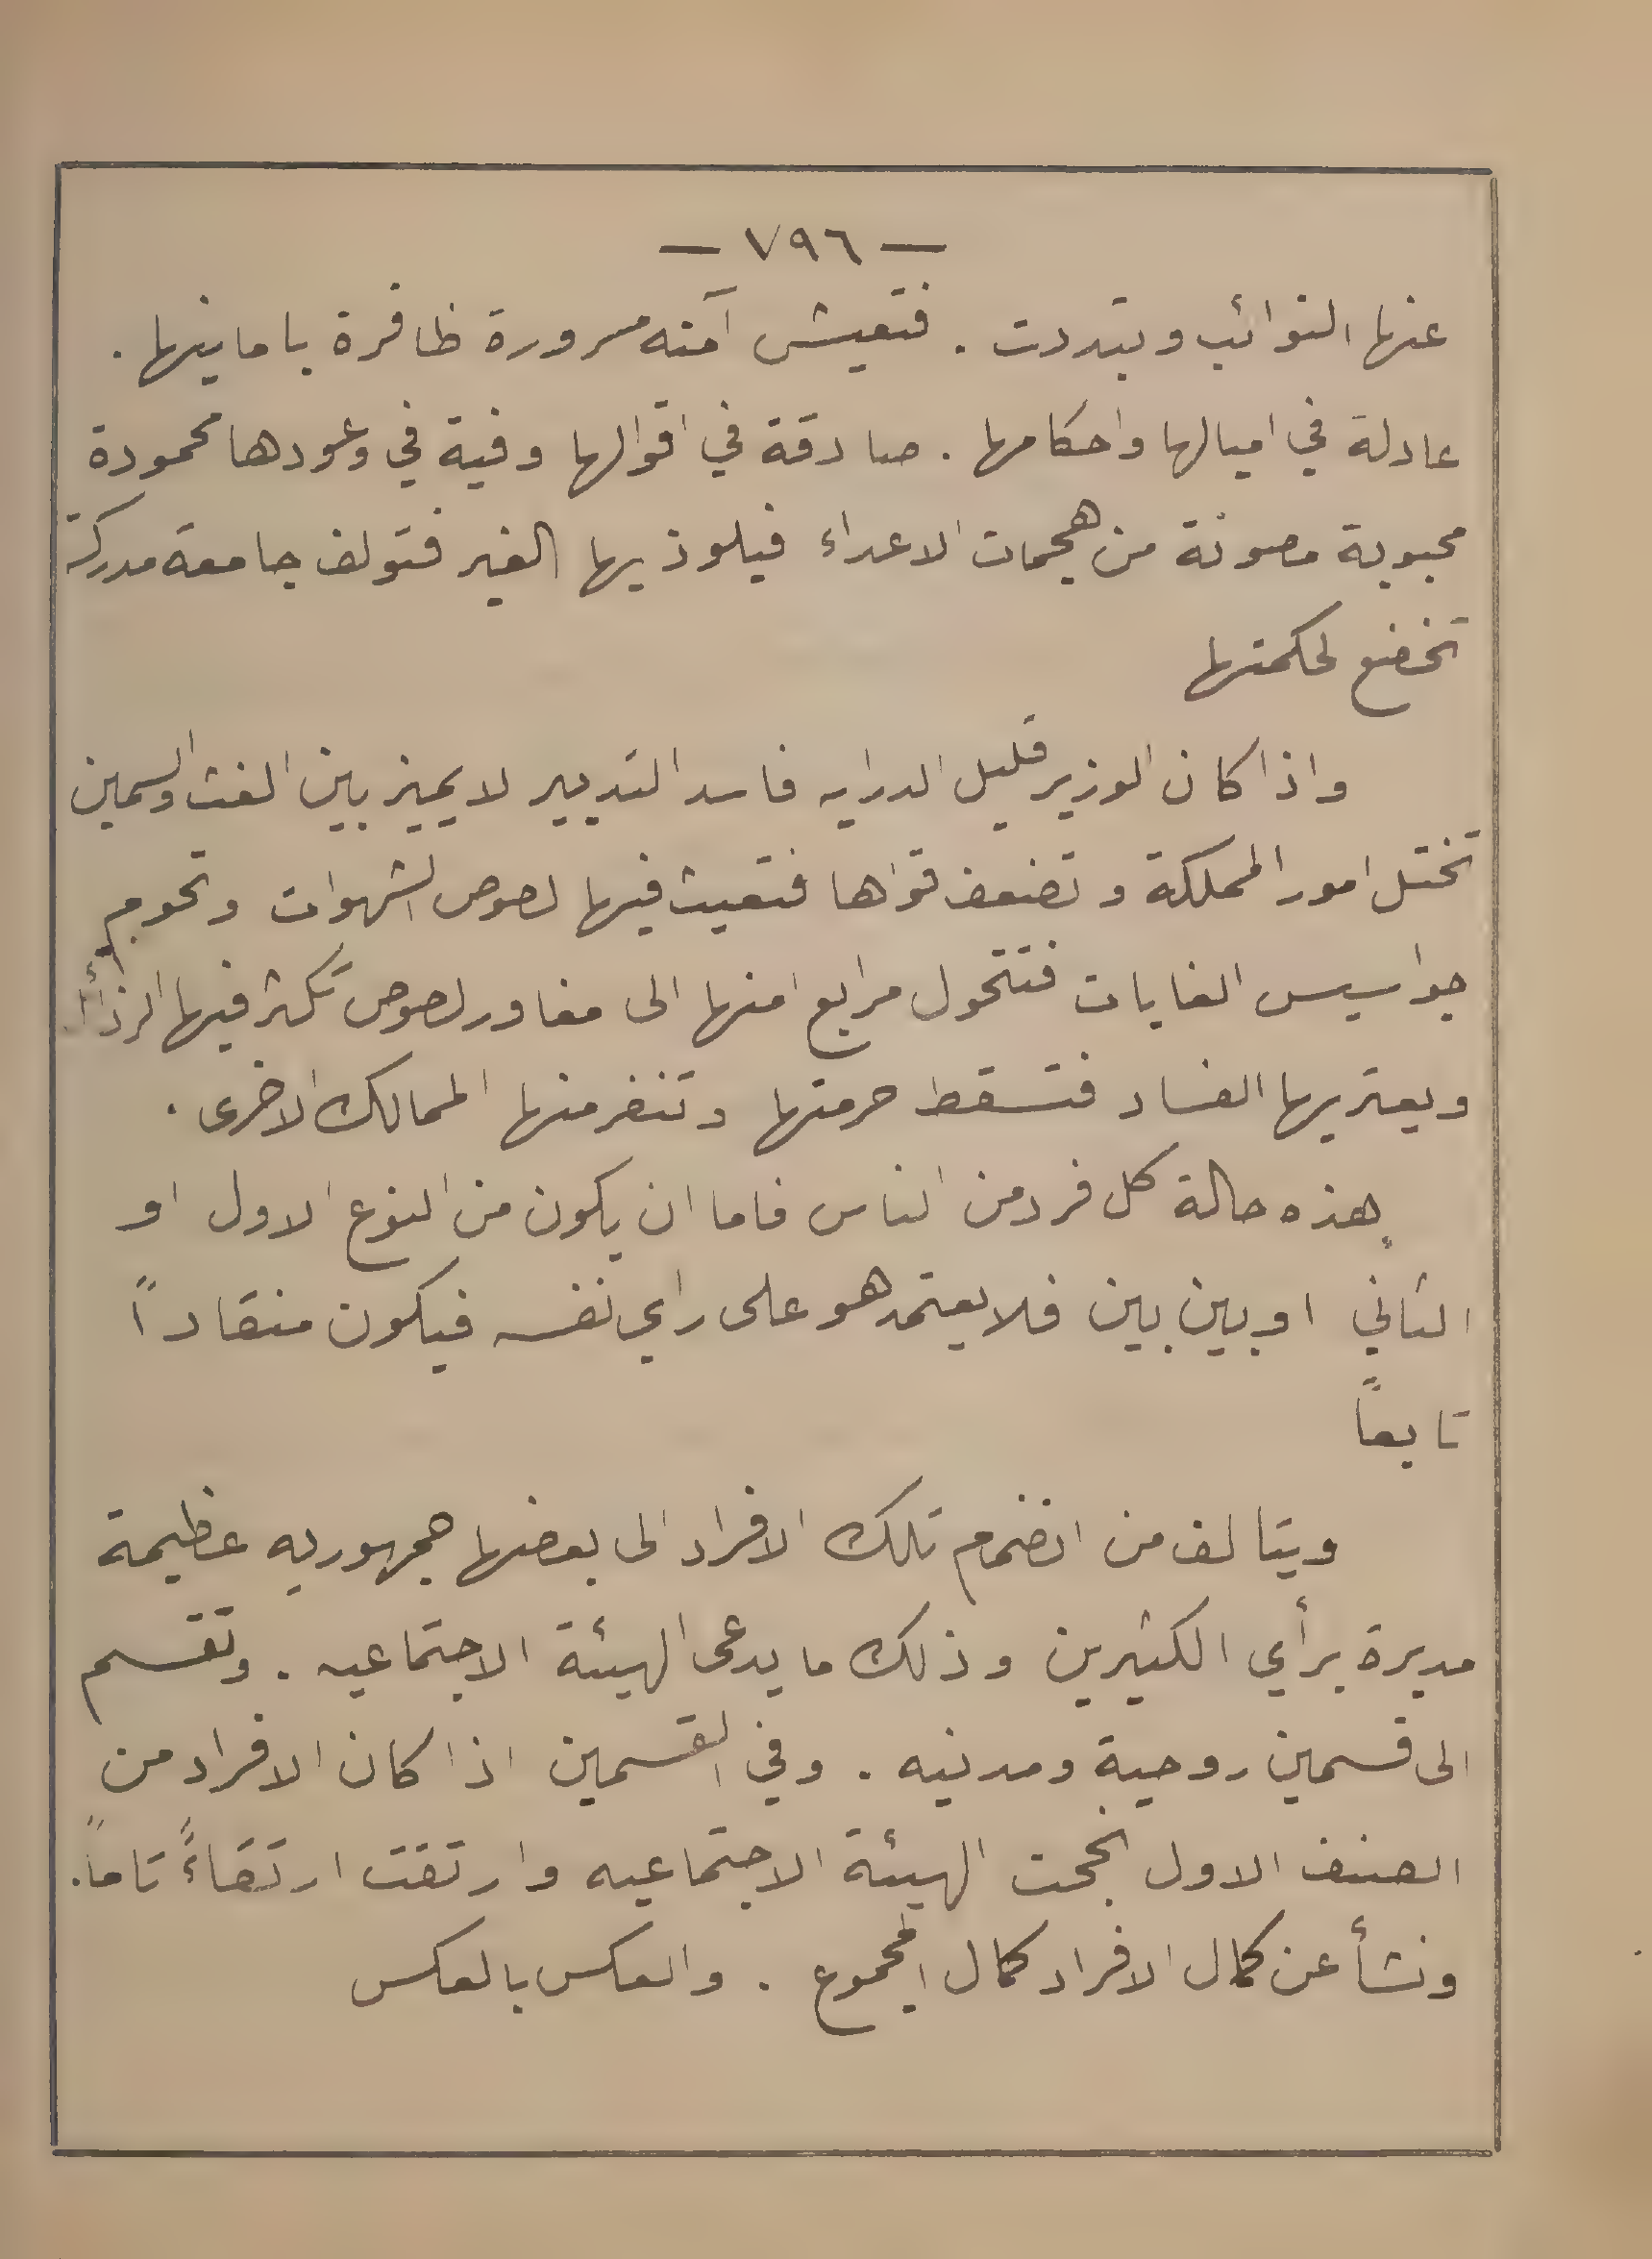 — ٧٩٦ —
عنها النوائب وتبددت . فتعيش آمنه مسرورة ظافرة بامانيها .
عادلة في اميالها واحكامها . صادقة في اقوالها وفية في وعودها محمودة
محبوبة مصونة من هجمات الاعداء فيلوذ بها الغير فتولف جامعة مدركة
تخضع لحكمتها
واذا كان الوزير قليل الدرايه فاسد التدبير لا يميز بين الغث والسمين
تختل امور المملكة وتضعف قواها فتعيث فيها لصوص الشهوات وتحوم
جواسيس الغايات فتتحول مرابع امنها الى مغاور لصوص تكثر فيها الرذائل
ويعتريها الفساد فتسقط حرمتها وتنفر منها الممالك الاخرى .
هذه حالة كل فرد من الناس فاما ان يكون من النوع الاول او
الثاني او بين بين فلا يعتمد هو على راي نفسه فيكون منقاداً
تابعاً
ويتالف من انضمام تلك الافراد الى بعضها جمهوريه عظيمة
مديرة برأي الكثيرين وذلك ما يدعى الهيئة الاجتماعيه . وتقسم
الى قسمين روحية ومدنيه . وفي القسمين اذا كان الافراد من
الصنف الاول نجحت الهيئة الاجتماعيه وارتقت ارتقاءً تاماً .
ونشأ عن كمال الافراد كمال المجموع . والعكس بالعكس